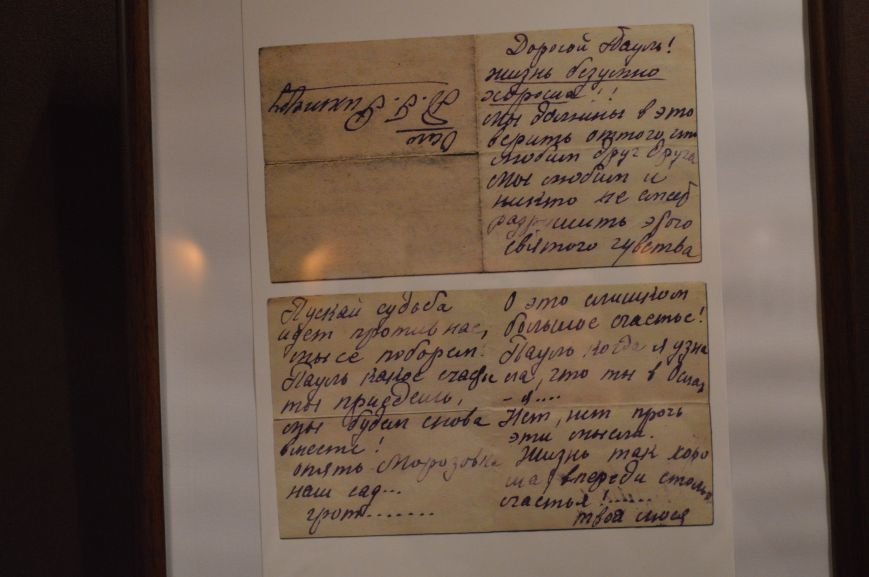 Дорогой Пауль!
жизнь безумно
хороша!!!
Мы должны в это
верить оттого, что
любим друг друга
Мы любим и
никто не смеет
разрушить этого
святого чувства
Пускай судьба
идет против нас,
мы её поборем!
Пауль какое счастье
ты приедешь,
мы будем снова
вместе!
опять Морозовка
наш сад...
грот........
О это слишком
большое счастье!
Пауль когда я узна
ла, что ты в
- я....
Нет, нет прочь
эти мысли.
Жизнь так хоро
ша, впереди столько
счастья!......
твоя Люся